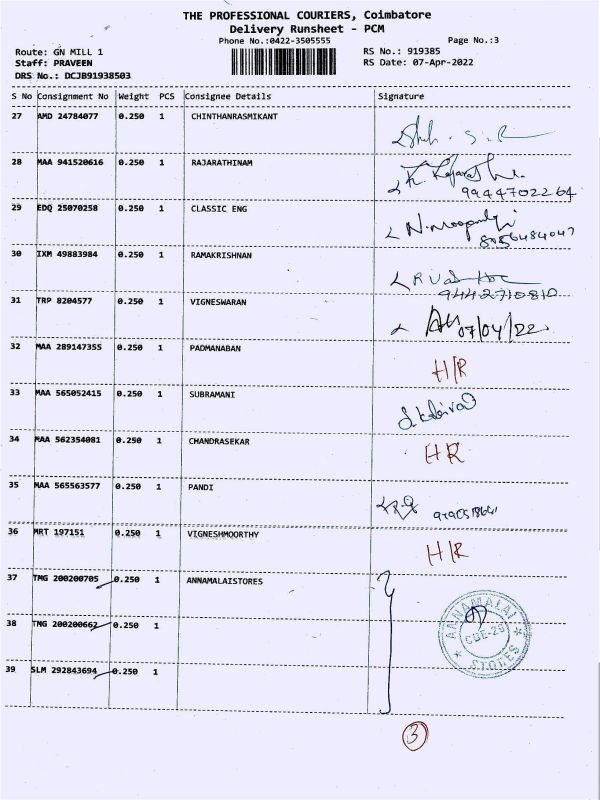 THE PROFESSIONAL COURIERS, Coimbatore
Delivery Runsheet - PCM
Phone No.:0422-3505555 Page No.:3
Route: GN MILL 1 RS No.: 919385
Staff: PRAVEEN RS Date: 07-Apr-2022
DRS No.: DCJB91938503
S No Consignment No Weight PCS Consignee Details Signature
27 AMD 24784077 0.250 1 CHINTHANRASMIKANT
28 MAA 941520616 0.250 1 RAJARATHINAM
9944702264
29 EDQ 25070258 0.250 1 CLASSIC ENG
8056484047
30 IXM 49883984 0.250 1 RAMAKRISHNAN
9442710810
31 TRP 8204577 0.250 1 VIGNESWARAN
07/04/22
32 MAA 289147355 0.250 1 PADMANABAN H/R
33 MAA 565052415 0.250 1 SUBRAMANI
34 MAA 562354081 0.250 1 CHANDRASEKAR HR
35 MAA 565563577 0.250 1 PANDI
36 MRT 197151 0.250 1 VIGNESHMOORTHY H/R
37 TMG 200200705 0.250 1 ANNAMALAISTORES
38 TMG 200200662 0.250 1
ANNAMALAI STORES
CBE-29
39 SLM 292843694 0.250 1
3